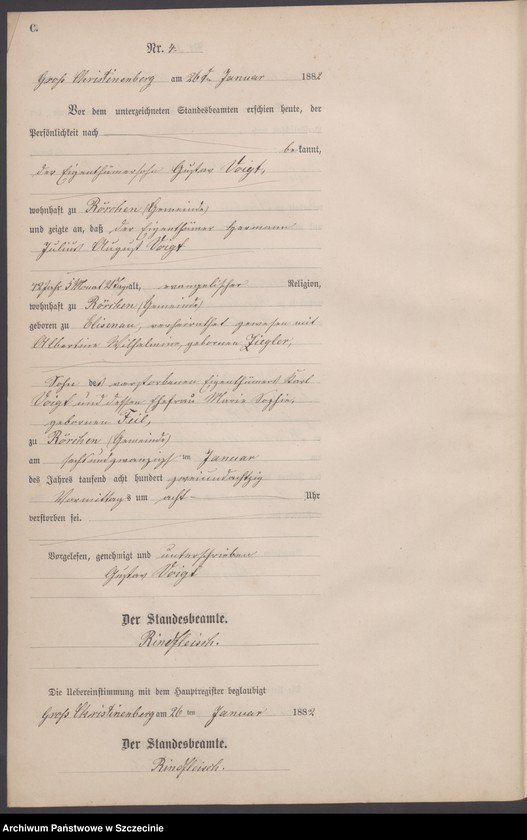 C.
Nr. 4.
Groß Christinenberg am 26ten Januar 1882
Vor dem unterzeichneten Standesbeamten erschien heute, der
Persönlichkeit nach
bekannt,
der Eigenthümersohn Gustav Voigt,
wohnhaft zu Rörchen (Gemeinde)
und zeigte an, daß der Eigenthümer Hermann
Julius August Voigt
Jahr 5 Monat Tag alt, evangelischer Religion,
wohnhaft zu Rörchen (Gemeinde)
geboren zu Elisenau, verheirathet gewesen mit
Albertine Wilhelmine, geborenen Ziegler,
Sohn des verstorbenen Eigenthümers Karl
Voigt und dessen Ehefrau Marie Sophie,
geborenen Feil,
zu Rörchen (Gemeinde)
am sechsundzwanzigsten Januar
des Jahres tausend acht hundert zweiundachtzig
Vormittags um acht Uhr
verstorben sei.
Vorgelesen, genehmigt und unterschrieben
Gustav Voigt
Der Standesbeamte.
Rindfleisch.
Die Uebereinstimmung mit dem Hauptregister beglaubigt
Groß Christinenberg am 26 ten Januar 1882
Der Standesbeamte.
Rindfleisch.
Archiwum Państwowe w Szczecinie